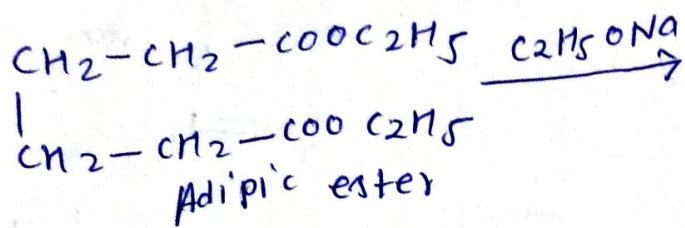 CH2-CH2-COOC2H5 C2H5ONa
|
CH2-CH2-COO C2H5
Adipic ester